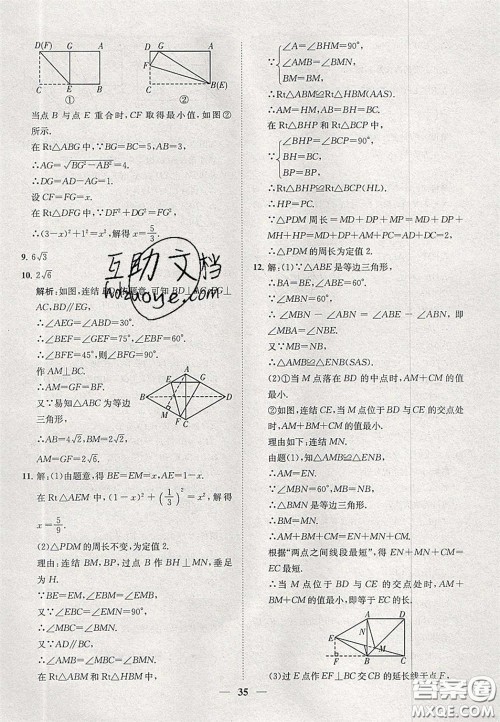 D(F) G A
C E B
①
F D G A
C B(E)
②
当点B与点E重合时,CF取得最小值,如图②
所示.
在Rt△ABG中,∵BG=BC=5,AB=3,
∴AG=√(BG²-AB²)=4.
∴DG=AD-AG=1.
在Rt△DFG中,∵DF²+DG²=FG²,
∴(3-x)²+1²=x²,解得x=5/3.
9. 6√3
10. 2√6
∴∠AEG=∠AEF=30°,
∴∠BEG=∠BEF=60°.
∴∠BFE=75°,则∠BFG=90°.
作AM⊥BF.
∴AM=GF=BF.
又∵易知△ABC为等边
三角形,
∴AB=4√2,BM=2√2.
∴AM=GF=2√6.
11. 解:(1)由题意,得BE=EM=x,
在Rt△AEM中,(1-x)²+(1/3)²=x²,解得
x=5/9.
(2)△PDM的周长不变,为定值2.
理由:连结BM,BP,过点B作BH⊥MN,垂足
为H.
∵BE=EM,∴∠EBM=∠EMB.
又∵∠EBC=∠EMN=90°,
∴∠MBC=∠BMN.
又∵AD∥BC,
∴∠AMB=∠MBC.
∴∠AMB=∠BMN.
在Rt△ABM与Rt△HBM中,
∵{∠A=∠BHM=90°,
∠AMB=∠BMN,
BM=BM,
∴Rt△ABM≌Rt△HBM(AAS).
∴AM=HM,AB=BH=BC.
在Rt△BHP和Rt△BCP中,
∵{BH=BC,
BP=BP,
∴Rt△BHP≌Rt△BCP(HL).
∴HP=PC.
∴△PDM周长=MD+DP+MP=MD+DP+
MH+HP=MD+AM+DP+PC=AD+DC=2.
∴△PDM的周长为定值2.
12. 解:(1)∵△ABE是等边三角形,
∴BA=BE,∠ABE=60°.
又∵∠MBN=60°,
∴∠MBN-∠ABN=∠ABE-∠ABN,即
∠ABM=∠NBE.
又∵MB=NB,
∴△AMB≌△ENB.
(2)①当M点落在BD的中点时,AM+CM的
值最小.
②如图,连结CE,当M点位于BD与CE的交点处
时,AM+BM+CM的值最小.
理由如下:连结MN.
由题(1),知△AMB≌△ENB,
∴AM=EN.
∵∠MBN=60°,MB=NB,
∴△BMN是等边三角形.
∴BM=MN.
∴AM+BM+CM=EN+MN+CM.
根据“两点之间线段最短”,得EN+MN+CM=
EC最短.
∴当M点位于BD与CE的交点处时,AM+
BM+CM的值最小,即等于EC的长.
(3)过E点作EF⊥BC交CB的延长线于点F,
互助文档
hdzuoye.com
35
答案圈
MXQE.COM